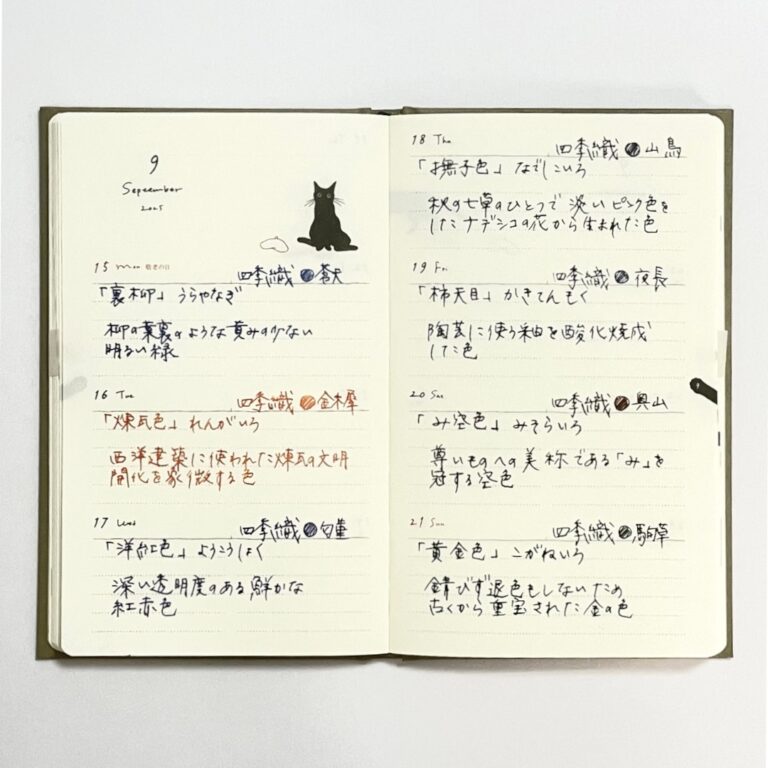 9
September
2025
15 Mon 敬老の日
四季織 ●蒼天
「裏柳」うらやなぎ
柳の葉裏のような黄みの少ない
明るい緑
16 Tue
四季織 ●金木犀
「煉瓦色」れんがいろ
西洋建築に使われた煉瓦の文明
開化を象徴する色
17 Wed
四季織 ●匂菫
「洋紅色」ようこうしょく
深い透明度のある鮮かな
紅赤色
18 Thu
四季織 ●山鳥
「撫子色」なでしこいろ
秋の七草のひとつで 淡いピンク色を
したナデシコの花から生まれた色
19 Fri
四季織 ●夜長
「柿天目」かきてんもく
陶芸に使う釉を酸化焼成
した色
20 Sat
四季織 ●奥山
「み空色」みそらいろ
尊いものへの美称である「み」を
冠する空色
21 Sun
四季織 ●駒草
「黄金色」こがねいろ
錆びず退色もしないため
古くから重宝された金の色